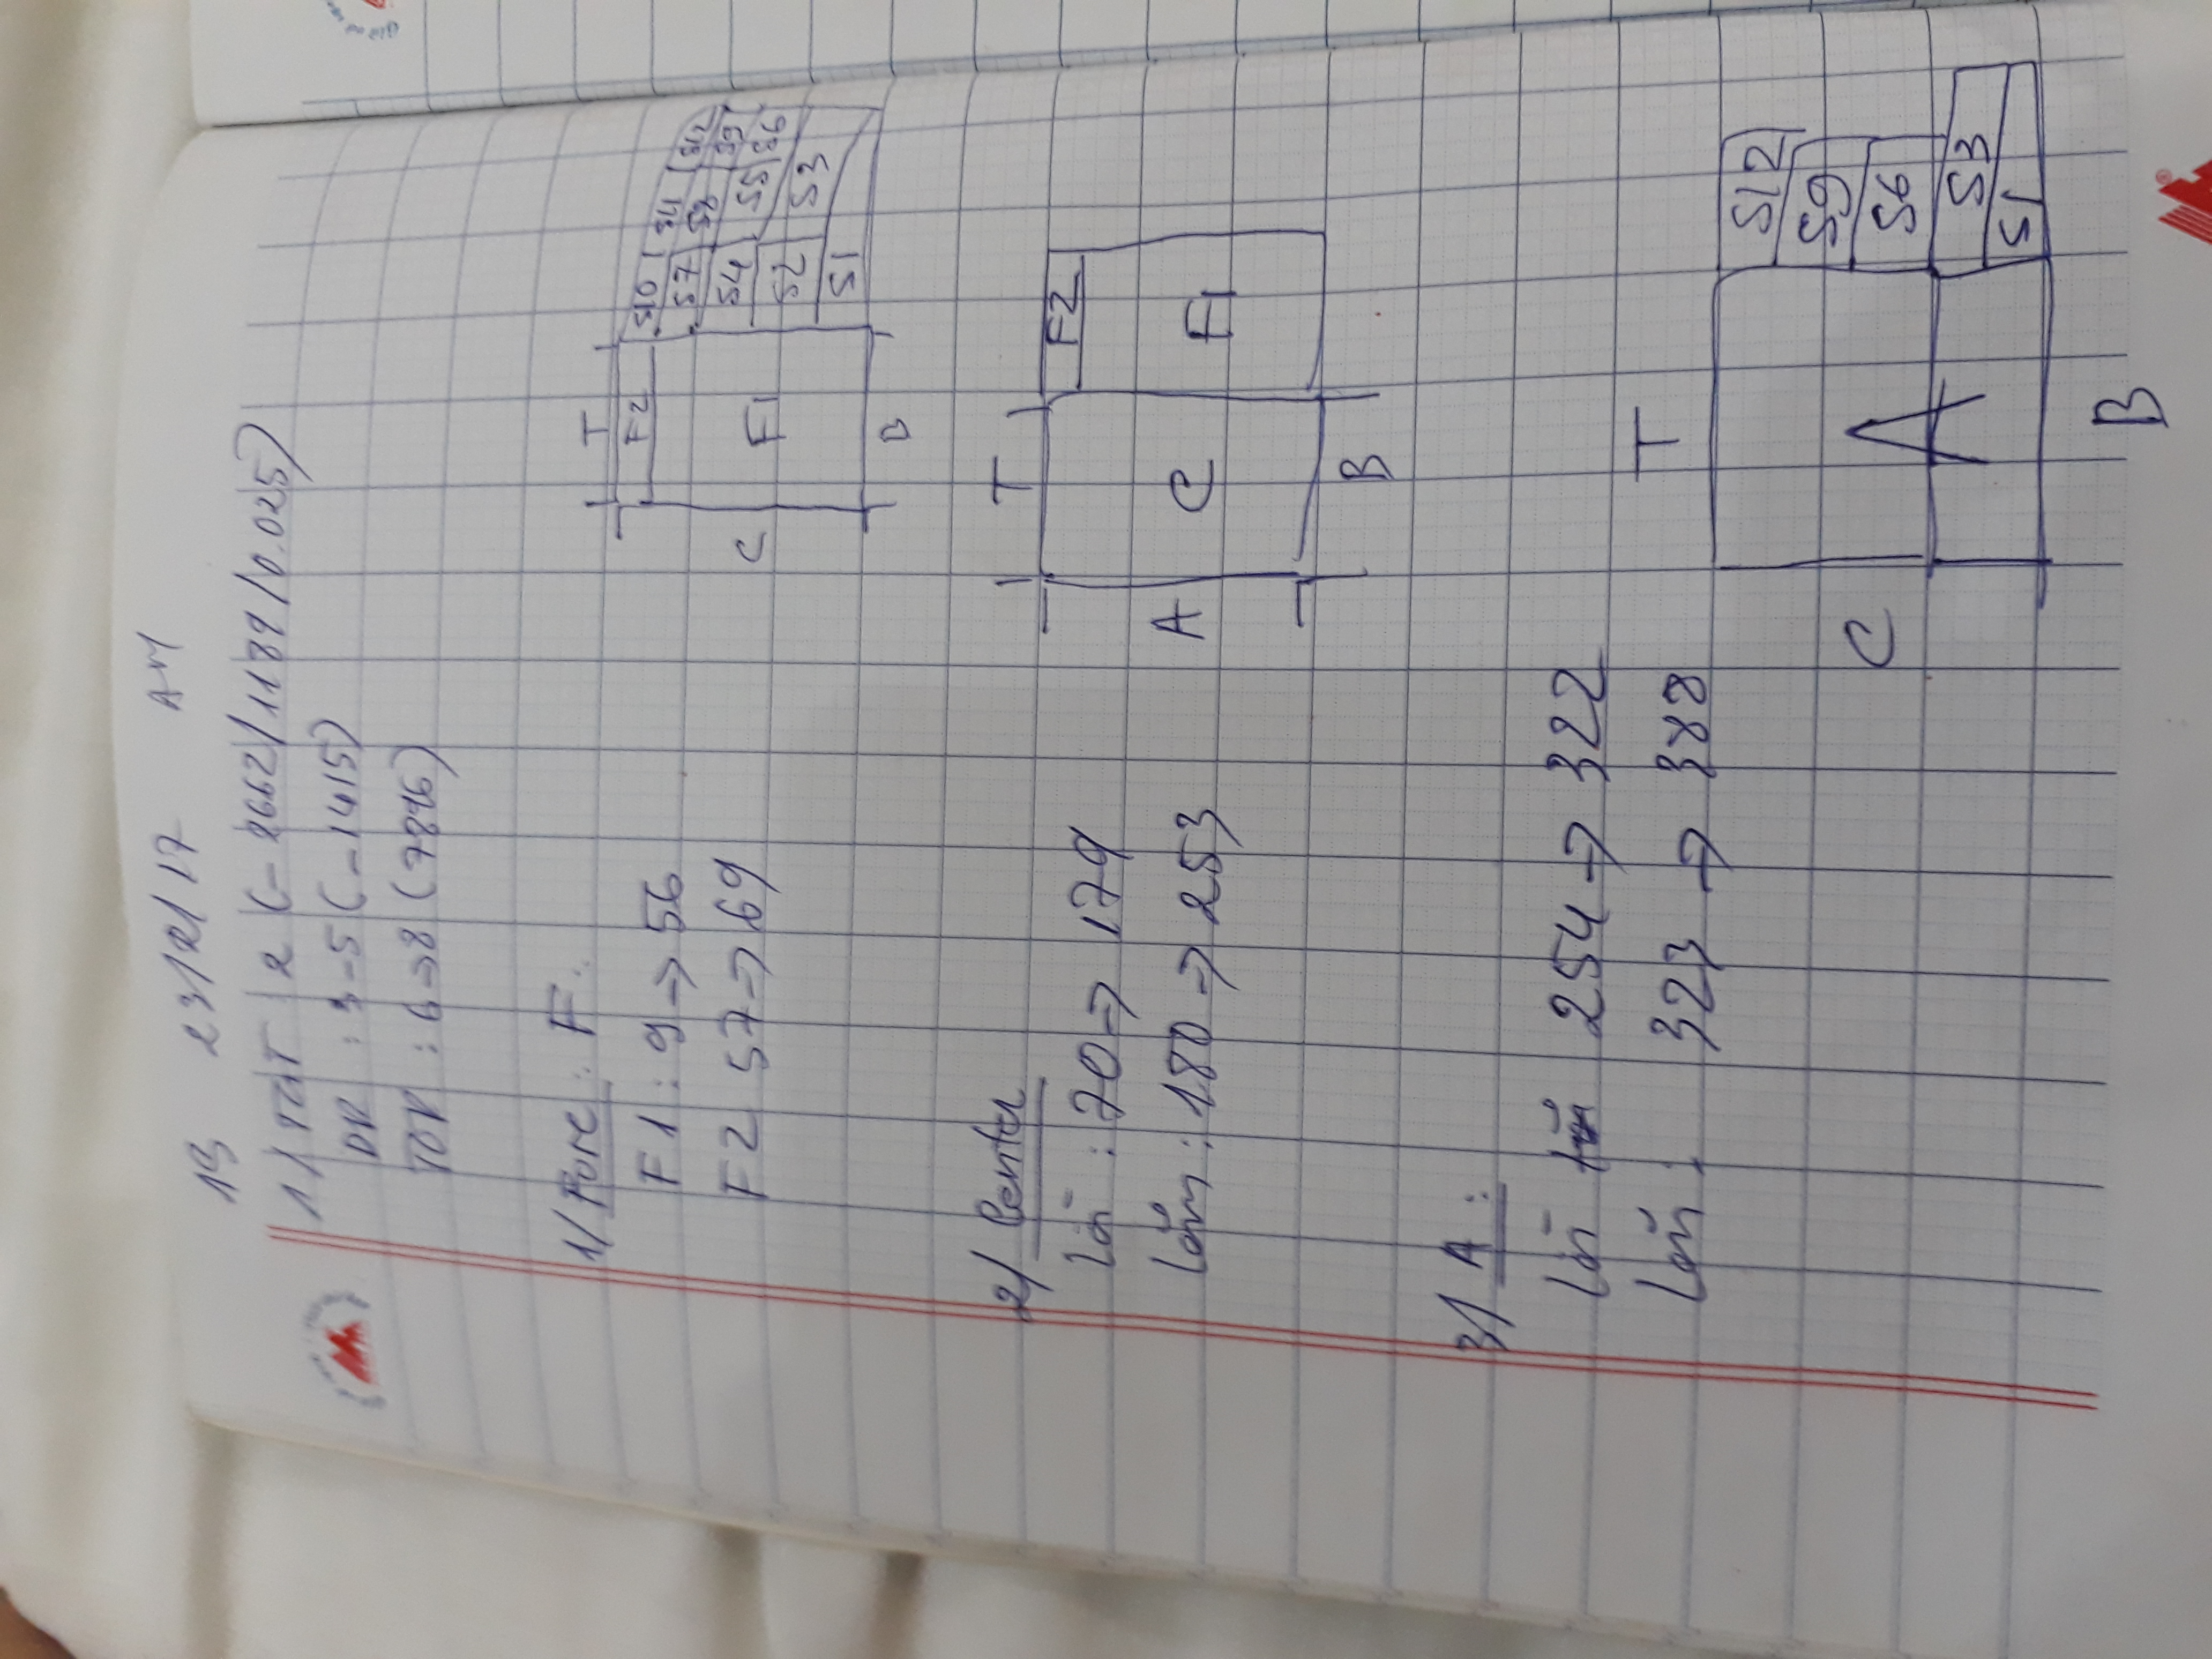 23/2/17 AM
1/ TGT 2 (-2662/1189/0.025)
DR : 3-5 (-1415)
TOP : 6->8 (7816)
1/ Fore : F :
F1 : 9 -> 56
F2 57 -> 69
T
F2 S10 S11 S12
S7 S8 S9
C F1 S4 S5 S6
S2 S3
S1
B
2/ Center
lồi : 70 -> 179
lõm : 180 -> 253
T
F2
A C F1
B
3/ A :
lồi 254 -> 322
323 -> 388
T
S12
S9
C A S6
S3
S1
B